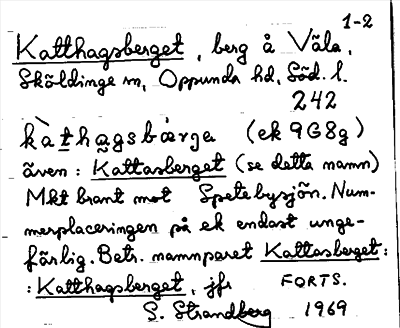 1-2
Katthagsberget, berg å Väla,
Sköldinge sn, Oppunda hd, Söd. l.
242
kàthagsbærja (ek 9G8g)
även: Kattasberget (se detta namn)
Mkt brant mot Spetebysjön. Num-
merplaceringen på ek endast unge-
färlig. Betr. namnparet Kattasberget:
: Katthagsberget, jfr FORTS.
S. Strandberg 1969